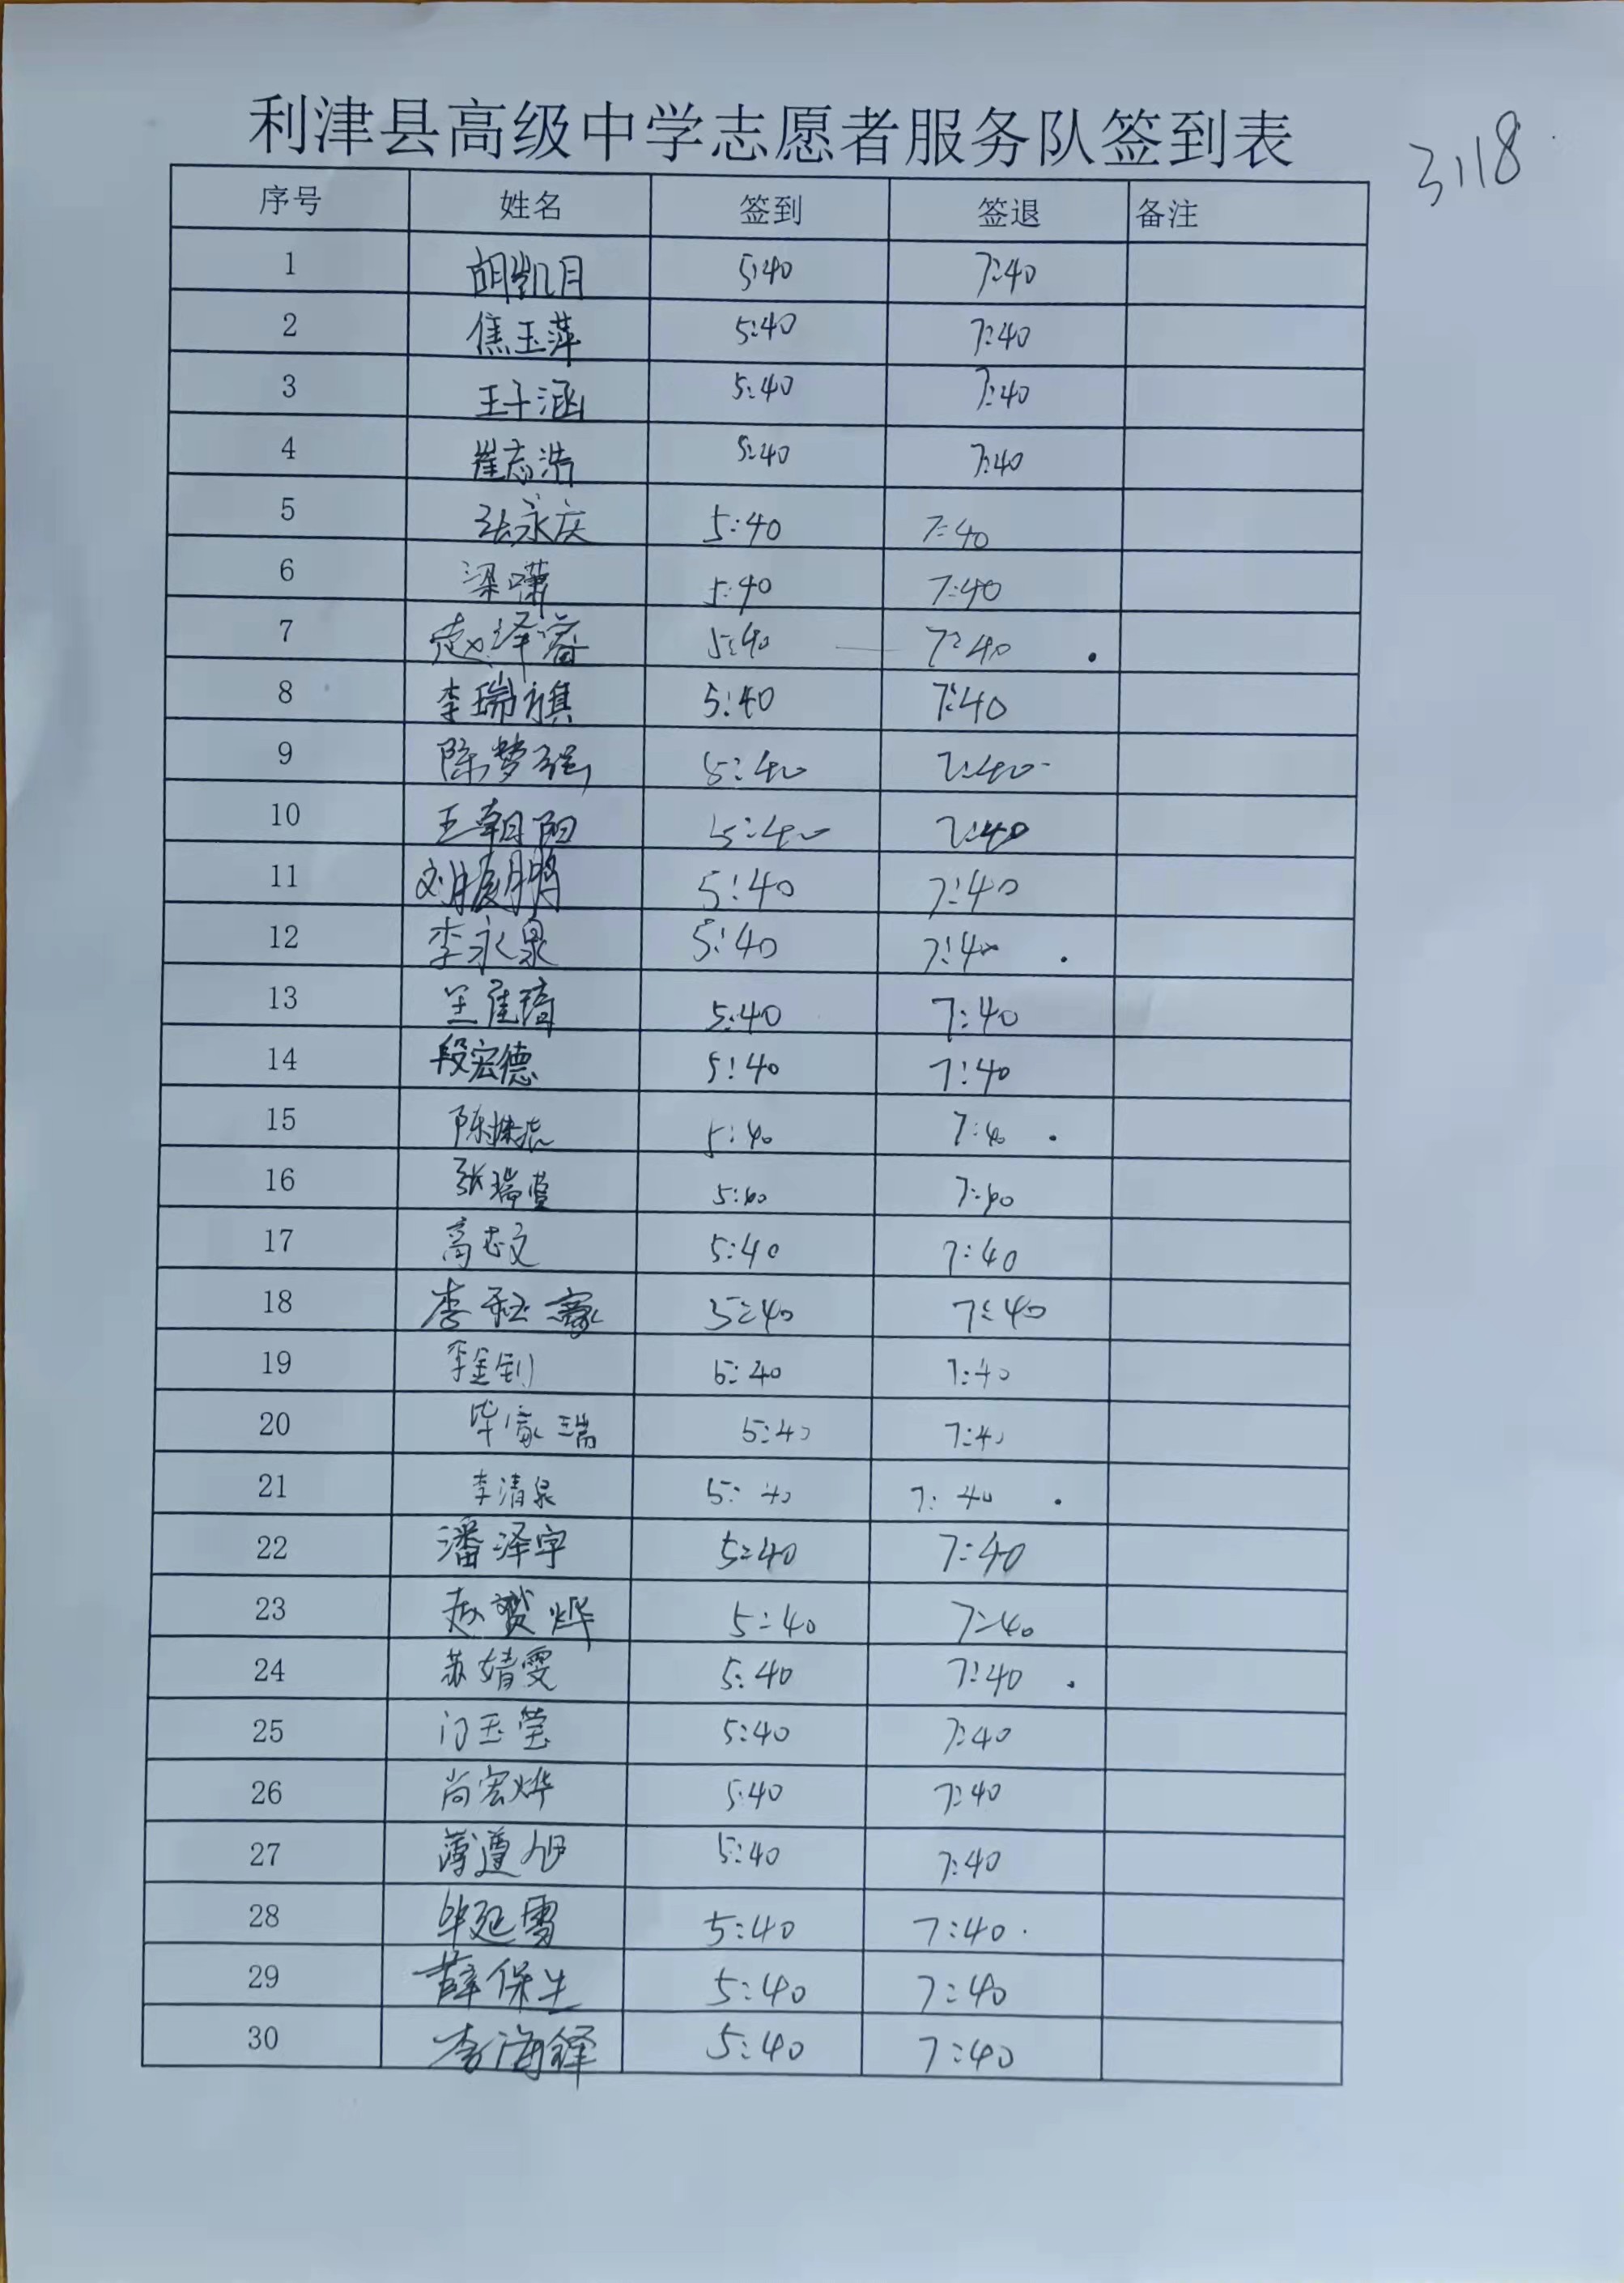 利津县高级中学志愿者服务队签到表
3.18
序号 姓名 签到 签退 备注
1 胡凯月 5:40 7:40
2 焦玉萍 5:40 7:40
3 王子涵 5:40 7:40
4 崔志浩 5:40 7:40
5 张永庆 5:40 7:40
6 梁啸 5:40 7:40
7 赵泽睿 5:40 7:40
8 李瑞旗 5:40 7:40
9 陈梦瑶 5:40 7:40
10 王朝阳 5:40 7:40
11 刘展鹏 5:40 7:40
12 李永泉 5:40 7:40
13 5:40 7:40
14 段宏德 5:40 7:40
15 5:40 7:40
16 张瑞萱 5:40 7:40
17 高志文 5:40 7:40
18 5:40 7:40
19 李金钊 5:40 7:40
20 毕家瑞 5:40 7:40
21 李清泉 5:40 7:40
22 潘泽宇 5:40 7:40
23 5:40 7:40
24 苏婧雯 5:40 7:40
25 门玉莹 5:40 7:40
26 尚宏烨 5:40 7:40
27 薄遵旭 5:40 7:40
28 毕延雪 5:40 7:40
29 薛保生 5:40 7:40
30 李海铎 5:40 7:40